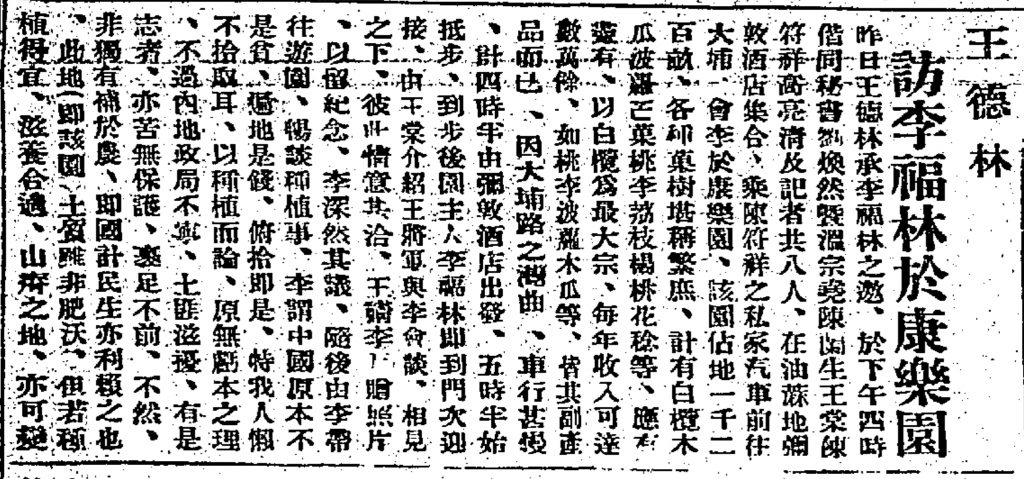 王德林
訪李福林於康樂園
昨日王德林承李福林之邀、於下午四時
偕同秘書劉煥然暨溫宗堯陳閏生王棠陳
符祥高亮淸及記者共八人、在油蔴地彌
敦酒店集合、乘陳符祥之私家汽車前往
大埔、會李於康樂園、該園佔地一千二
百畝、各種菓樹堪稱繁庶、計有白欖木
瓜波蘿芒菓桃李荔枝楊桃花稔等、應有
盡有、以白欖爲最大宗、每年收入可達
數萬餘、如桃李波蘿木瓜等、皆其副產
品而已、因大埔路之灣曲、車行甚慢
、計四時半由彌敦酒店出發、五時半始
抵步、到步後園主人李福林卽到門次迎
接、由王棠介紹王將軍與李會談、相見
之下、彼此情意甚洽、王請李 贈照片
、以留紀念、李深然其議、隨後由李帶
往遊園、暢談種植事、李謂中國原本不
是貧、遍地是錢、俯拾卽是、特我人懶
不拾取耳、以種植而論、原無虧本之理
、不過內地政局不寧、土匪滋擾、有是
志者、亦苦無保護、裹足不前、不然、
非獨有補於農、卽國計民生亦利賴之也
、此地(卽該園)土質雖非肥沃、但若種
植得宜、滋養合適、山瘠之地、亦可變